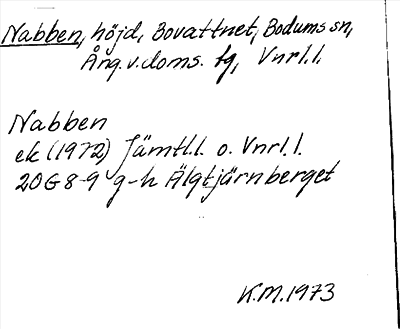 Nabben, höjd, Bovattnet, Bodums sn,
Ång. v. doms. tg, Vnrl.l.
Nabben
ek (1972) Jämtl.l. o. Vnrl.l.
20G 8-9 g-h Älgtjärnberget
K.M. 1973